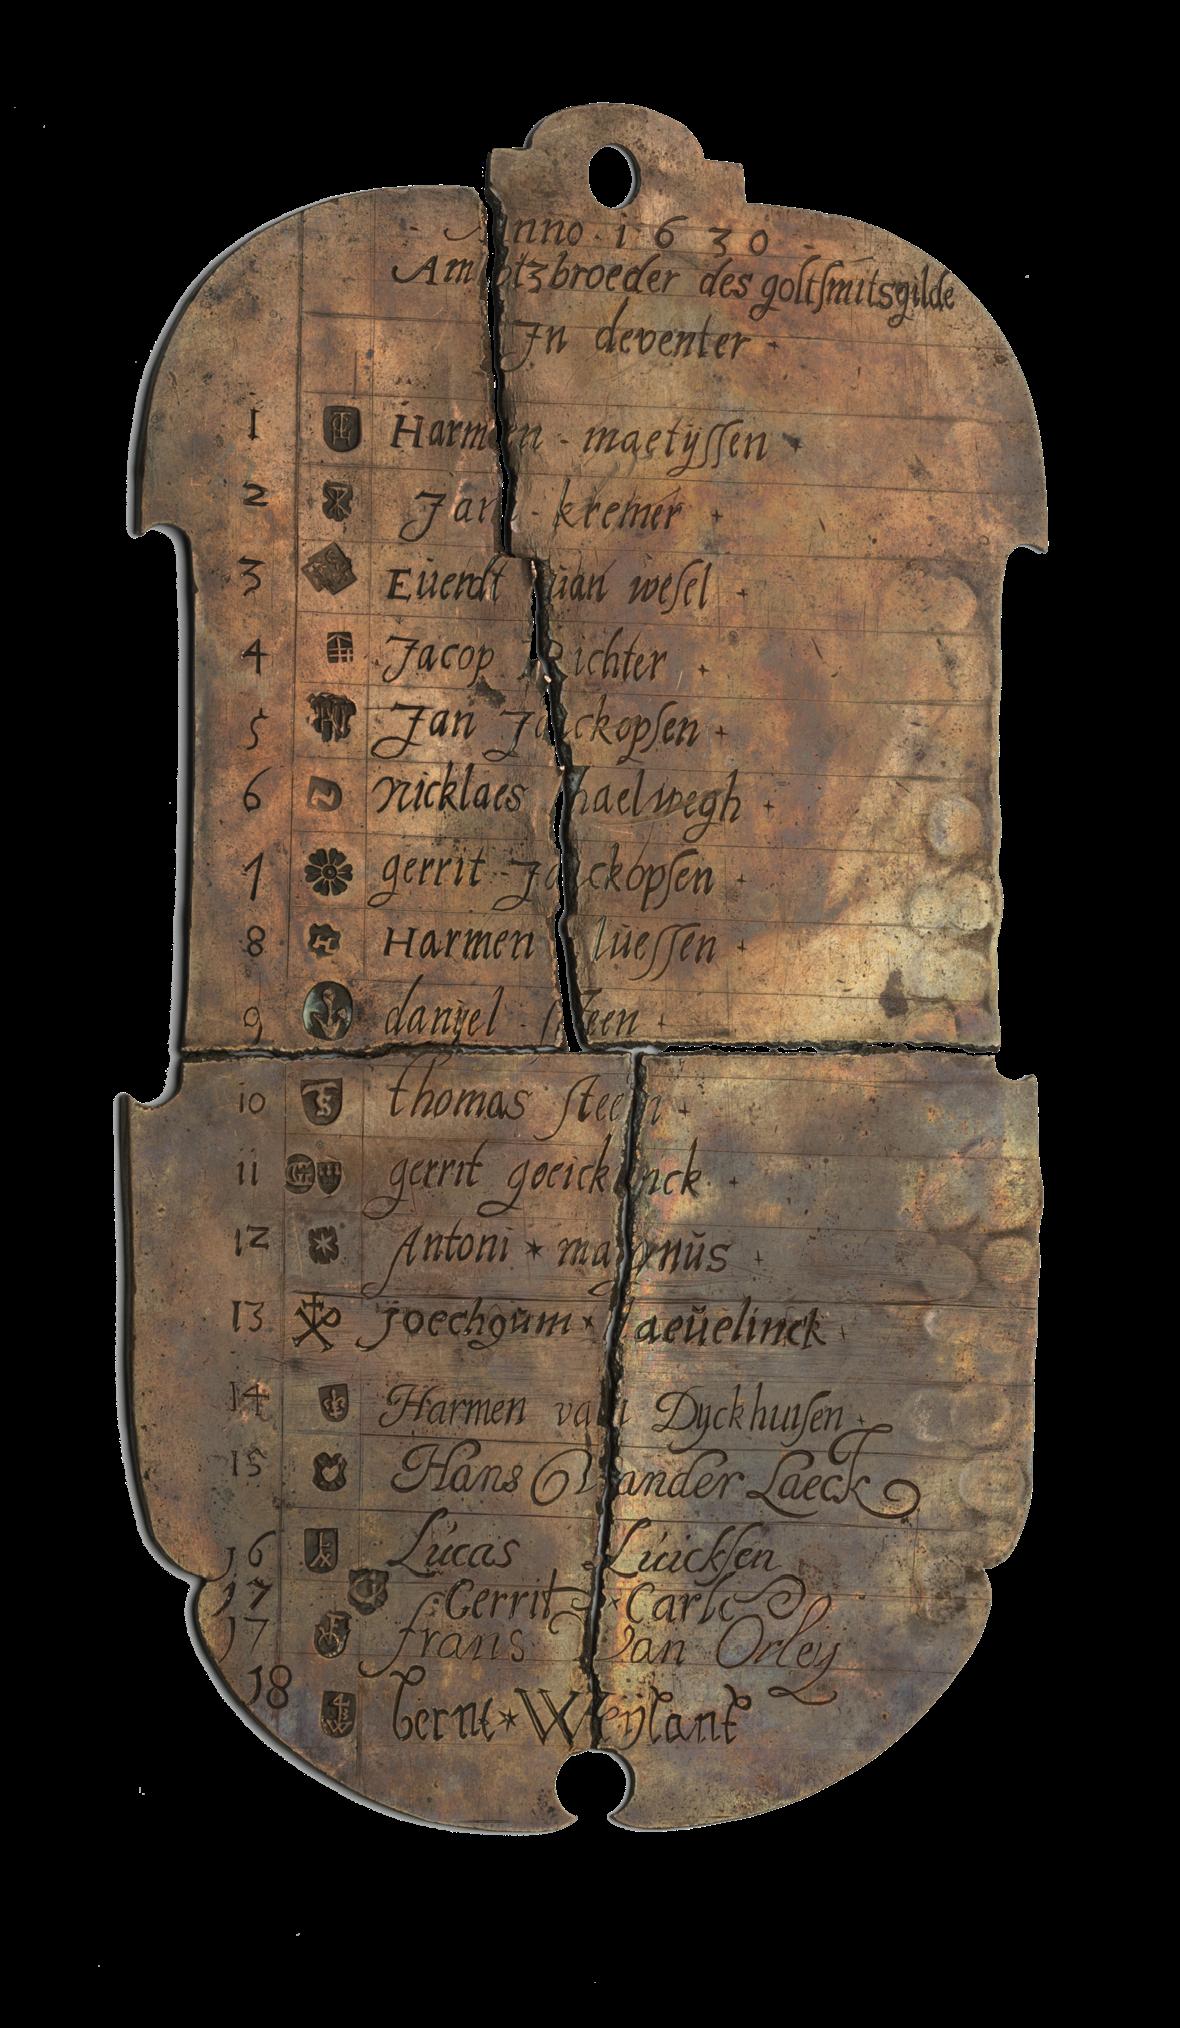 Anno · 1630 -
Ambtzbroeder des goltſmitsgilde
Jn deventer
1 Harmen - maetÿſſen
2 Jan - kremer
3 Eŭerdt ŭan weſel
4 Jacop Richter
5 Jan Jackopſen
6 nicklaes haelwegh
7 gerrit - Jackopſen
8 Harmen lŭeſſen
9 danÿel - ſteen
10 thomas ſteen
11 gerrit
12 Antoni * magnŭs
13 joechgŭm *
14 Harmen van Dyckhuiſen
15 Hans Vander Laeck
16 Lucas Luickſen
17 Gerrit * Carlc
17 frans Van Orley
18 bernt * Weÿlant